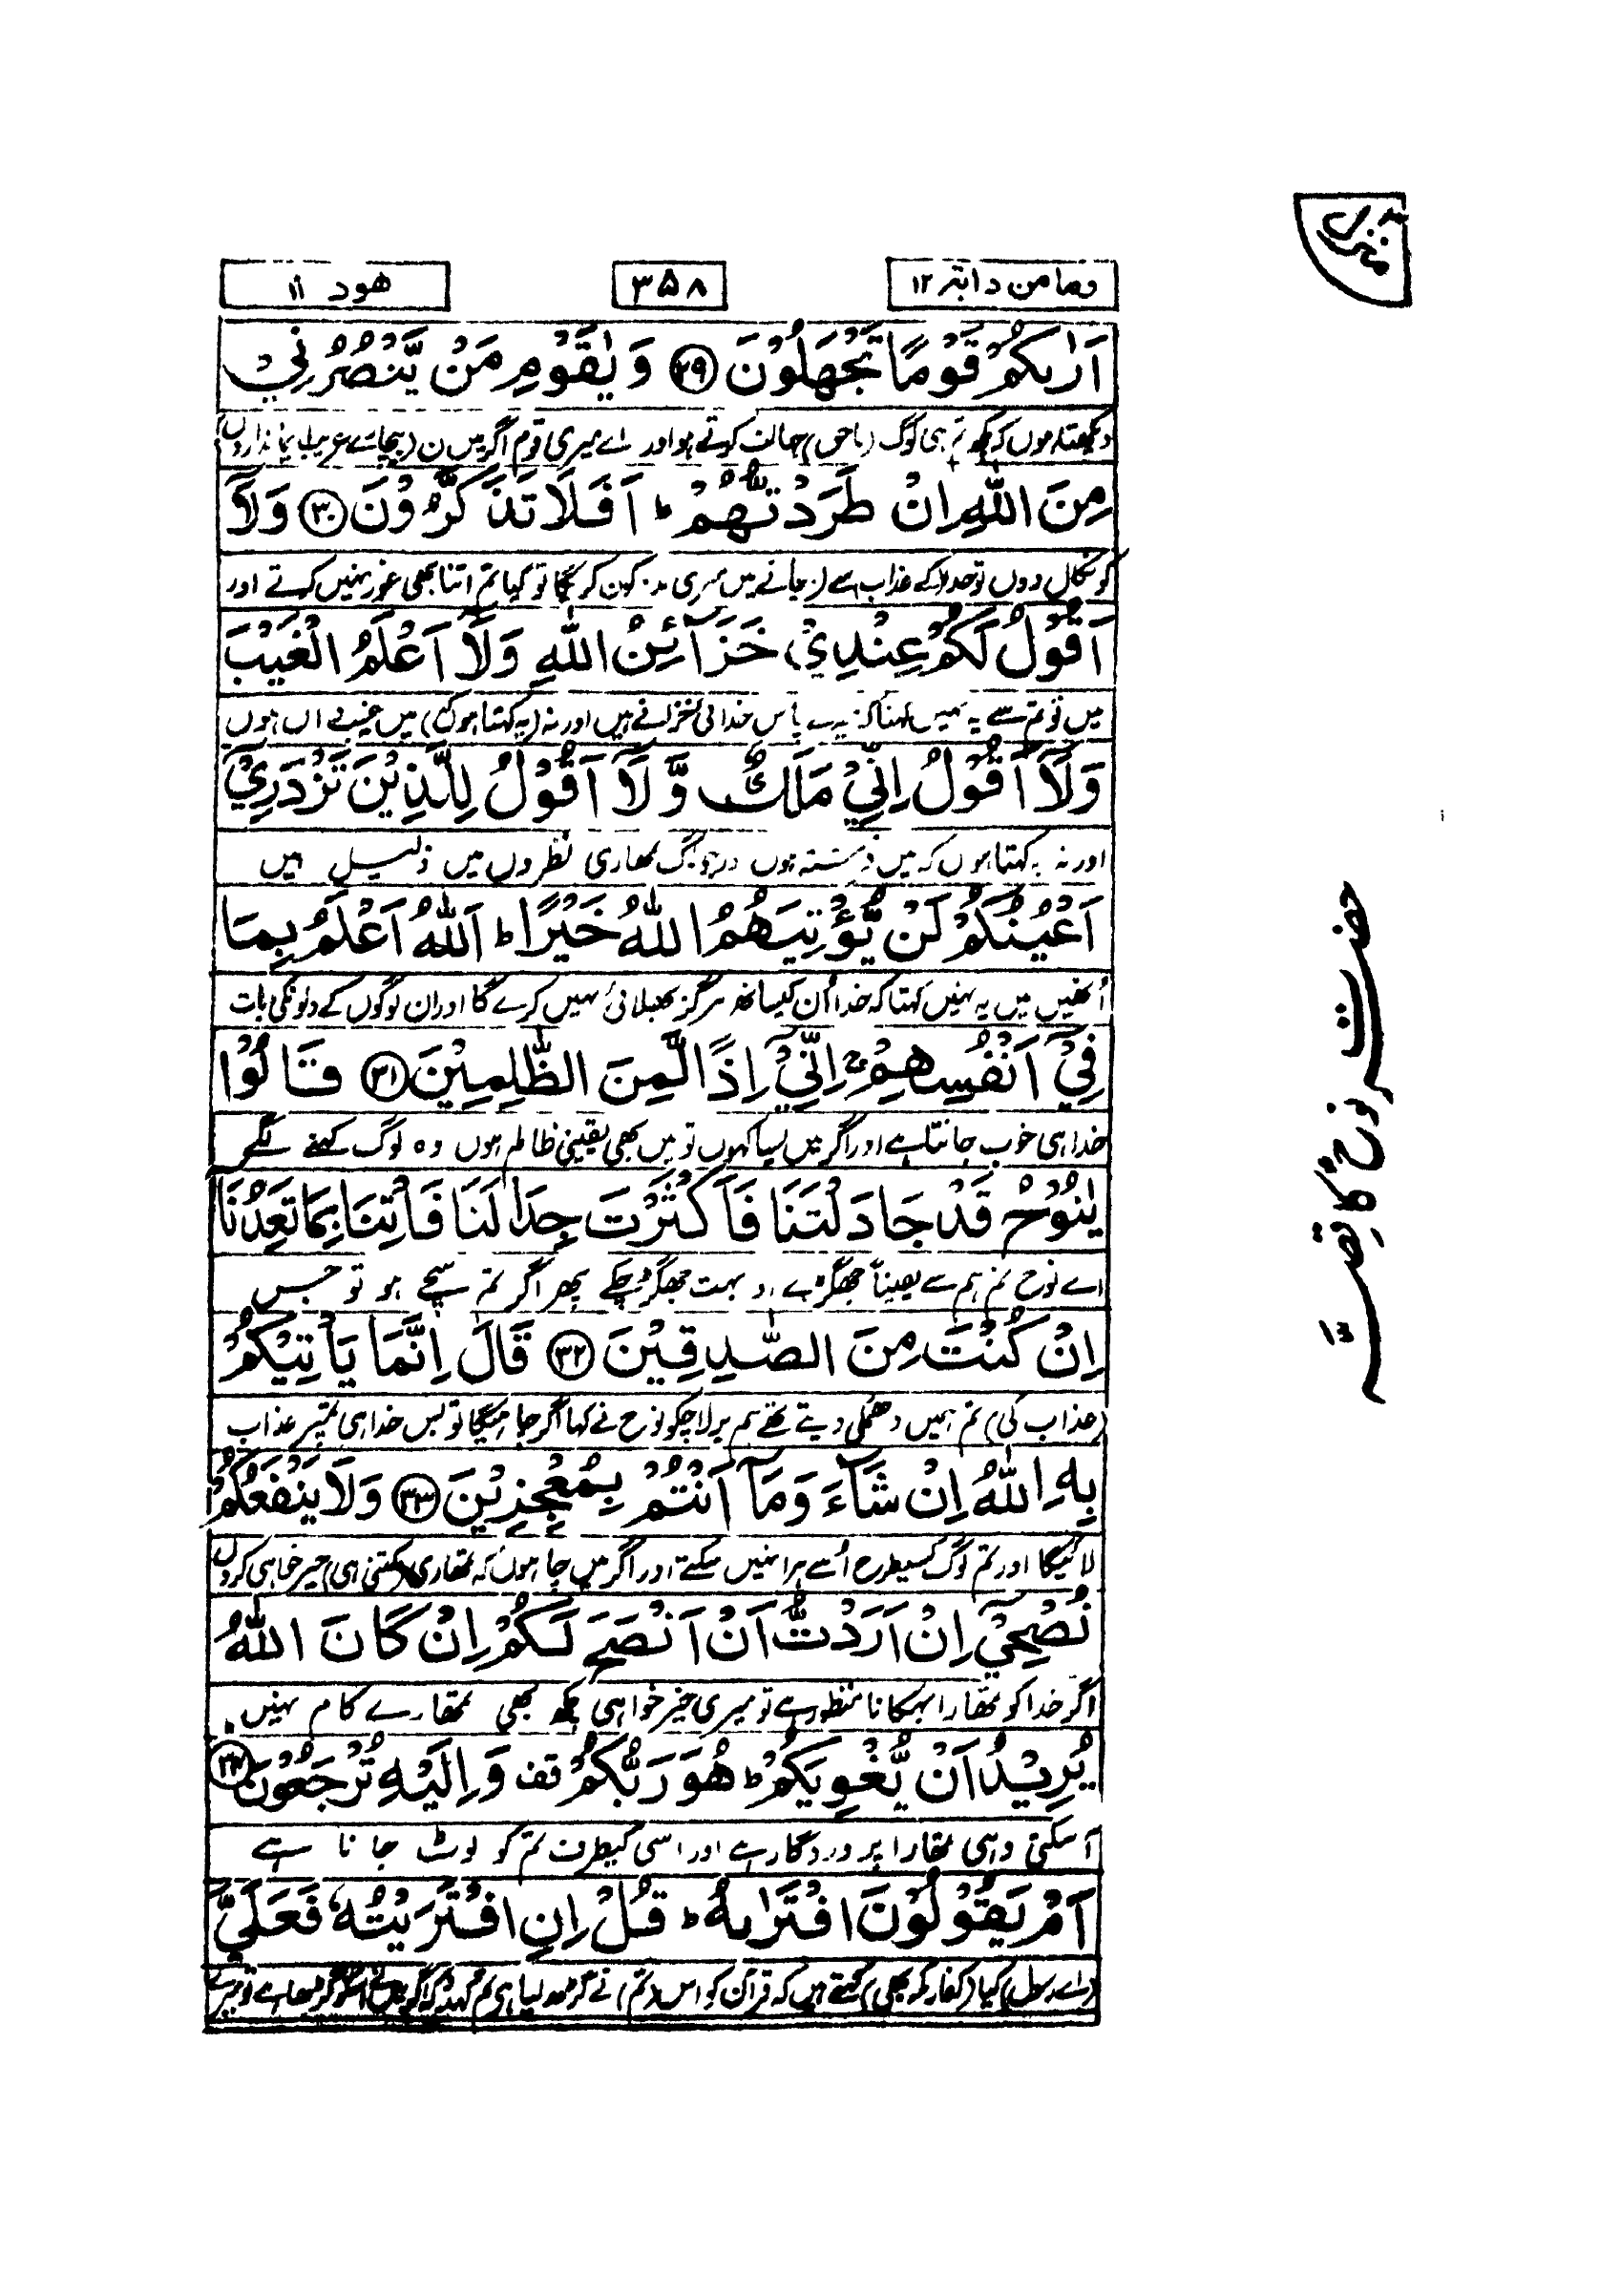 منزل ۳
ومامن دابۃ ۱۲
۳۵۸
ھود ۱۱
اَرٰىكُمْ قَوْمًا تَجْهَلُوْنَ ﴿۲۹﴾ وَيٰقَوْمِ مَنْ يَّنْصُرُنِيْ
دیکھتا ہوں کہ کچھ تم ہی لوگ (ناحق) جہالت کرتے ہو اور اے میری قوم اگر میں ان
مِنَ اللّٰهِ اِنْ طَرَدْتُّهُمْ ؕ اَفَلَا تَذَكَّرُوْنَ ﴿۳۰﴾ وَلَآ
کو نکال دوں تو خدا کے عذاب سے (بچانے میں میری مدد کون کریگا تو کیا تم اتنا بھی غور نہیں کرتے اور
اَقُوْلُ لَكُمْ عِنْدِيْ خَزَآئِنُ اللّٰهِ وَلَآ اَعْلَمُ الْغَيْبَ
میں تو تم سے یہ نہیں کہتا کہ میرے پاس خدائی خزانے ہیں اور نہ (یہ کہتا ہوں کہ) میں غیب داں ہوں
وَلَآ اَقُوْلُ اِنِّيْ مَلَكٌ وَّلَآ اَقُوْلُ لِلَّذِيْنَ تَزْدَرِيْٓ
اور نہ یہ کہتا ہوں کہ میں فرشتہ ہوں اور جو لوگ تمھاری نظروں میں ذلیل ہیں
اَعْيُنُكُمْ لَنْ يُّؤْتِيَهُمُ اللّٰهُ خَيْرًا ؕ اَللّٰهُ اَعْلَمُ بِمَا
اُنھیں میں یہ نہیں کہتا کہ خدا اُن کیساتھ ہرگز بھلائی نہیں کرے گا اور ان لوگوں کے دلونکی بات
فِيْٓ اَنْفُسِهِمْ ۚ اِنِّيْٓ اِذًا لَّمِنَ الظّٰلِمِيْنَ ﴿۳۱﴾ قَالُوْا
خدا ہی خوب جانتا ہے اور اگر میں ایسا کہوں تو میں بھی یقینی ظالم ہوں وہ لوگ کہنے لگے
يٰنُوْحُ قَدْ جَادَلْتَنَا فَاَكْثَرْتَ جِدَالَنَا فَاْتِنَا بِمَا تَعِدُنَآ
اے نوح تم ہم سے یقیناً جھگڑے اور بہت جھگڑ چکے پھر اگر تم سچے ہو تو جس
اِنْ كُنْتَ مِنَ الصّٰدِقِيْنَ ﴿۳۲﴾ قَالَ اِنَّمَا يَاْتِيْكُمْ
(عذاب کی) تم ہمیں دھمکی دیتے تھے ہم پر لا چکو نوح نے کہا اگر چاہیگا تو بس خدا ہی تمپر عذاب
بِهِ اللّٰهُ اِنْ شَآءَ وَمَآ اَنْتُمْ بِمُعْجِزِيْنَ ﴿۳۳﴾ وَلَا يَنْفَعُكُمْ
لائیگا اور تم لوگ کسیطرح اُسے ہرا نہیں سکتے اور اگر میں چاہوں کہ تمھاری (کتنی ہی) خیر خواہی کروں
نُصْحِيْٓ اِنْ اَرَدْتُّ اَنْ اَنْصَحَ لَكُمْ اِنْ كَانَ اللّٰهُ
اگر خدا کو تمھارا بہکانا منظور ہے تو میری خیر خواہی کچھ بھی تمھارے کام نہیں
يُرِيْدُ اَنْ يُّغْوِيَكُمْ ؕ هُوَ رَبُّكُمْ قف وَاِلَيْهِ تُرْجَعُوْنَ ﴿۳۴﴾
آسکتی وہی تمھارا پروردگار ہے اور اسی کیطرف تم کو لوٹ جانا ہے
اَمْ يَقُوْلُوْنَ افْتَرٰىهُ ؕ قُلْ اِنِ افْتَرَيْتُهٗ فَعَلَيَّ
(اے رسول) کیا (کفار مکہ بھی) کہتے ہیں کہ قرآن کو اس (تم) نے گڑھ لیا ہے تم کہدو کہ اگر میں نے اسکو گڑھا ہے تو میرے
حضرت نوحؑ کا قصّہ